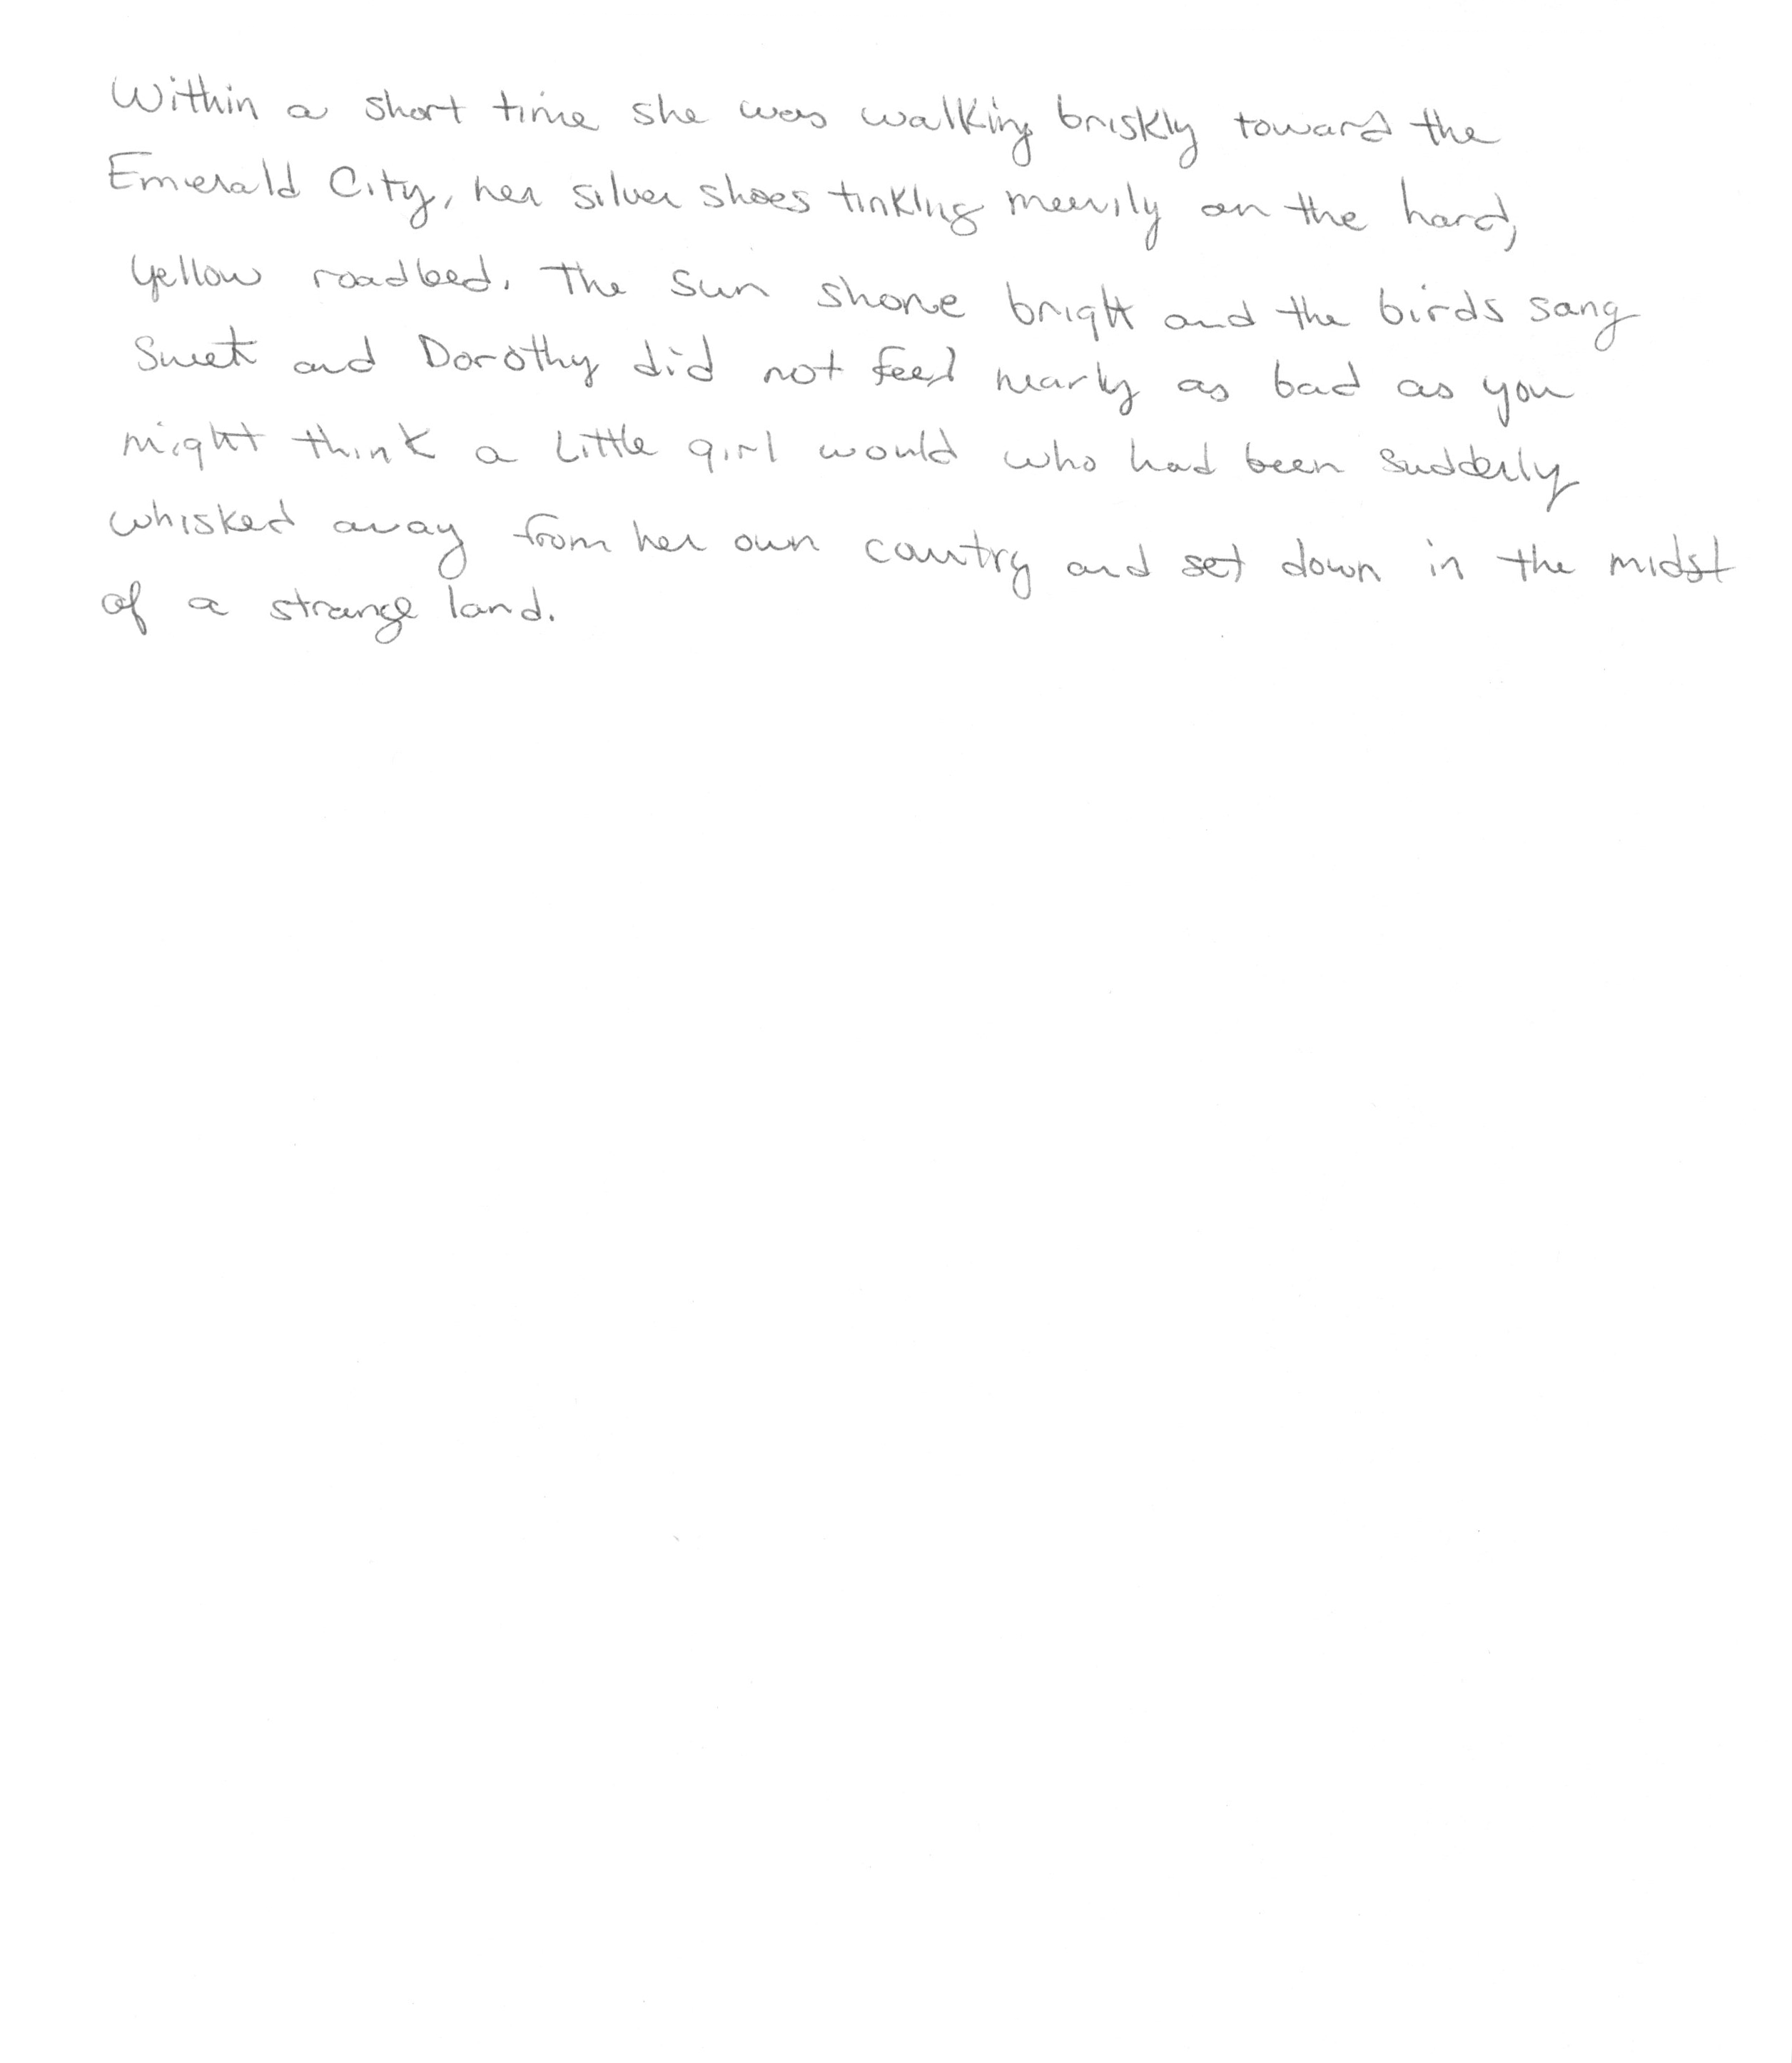 Within a short time she was walking briskly toward the
Emerald City, her silver shoes tinkling merrily on the hard,
yellow roadbed. The sun shone bright and the birds sang
sweet and Dorothy did not feel nearly as bad as you
might think a little girl would who had been suddenly
whisked away from her own country and set down in the midst
of a strange land.